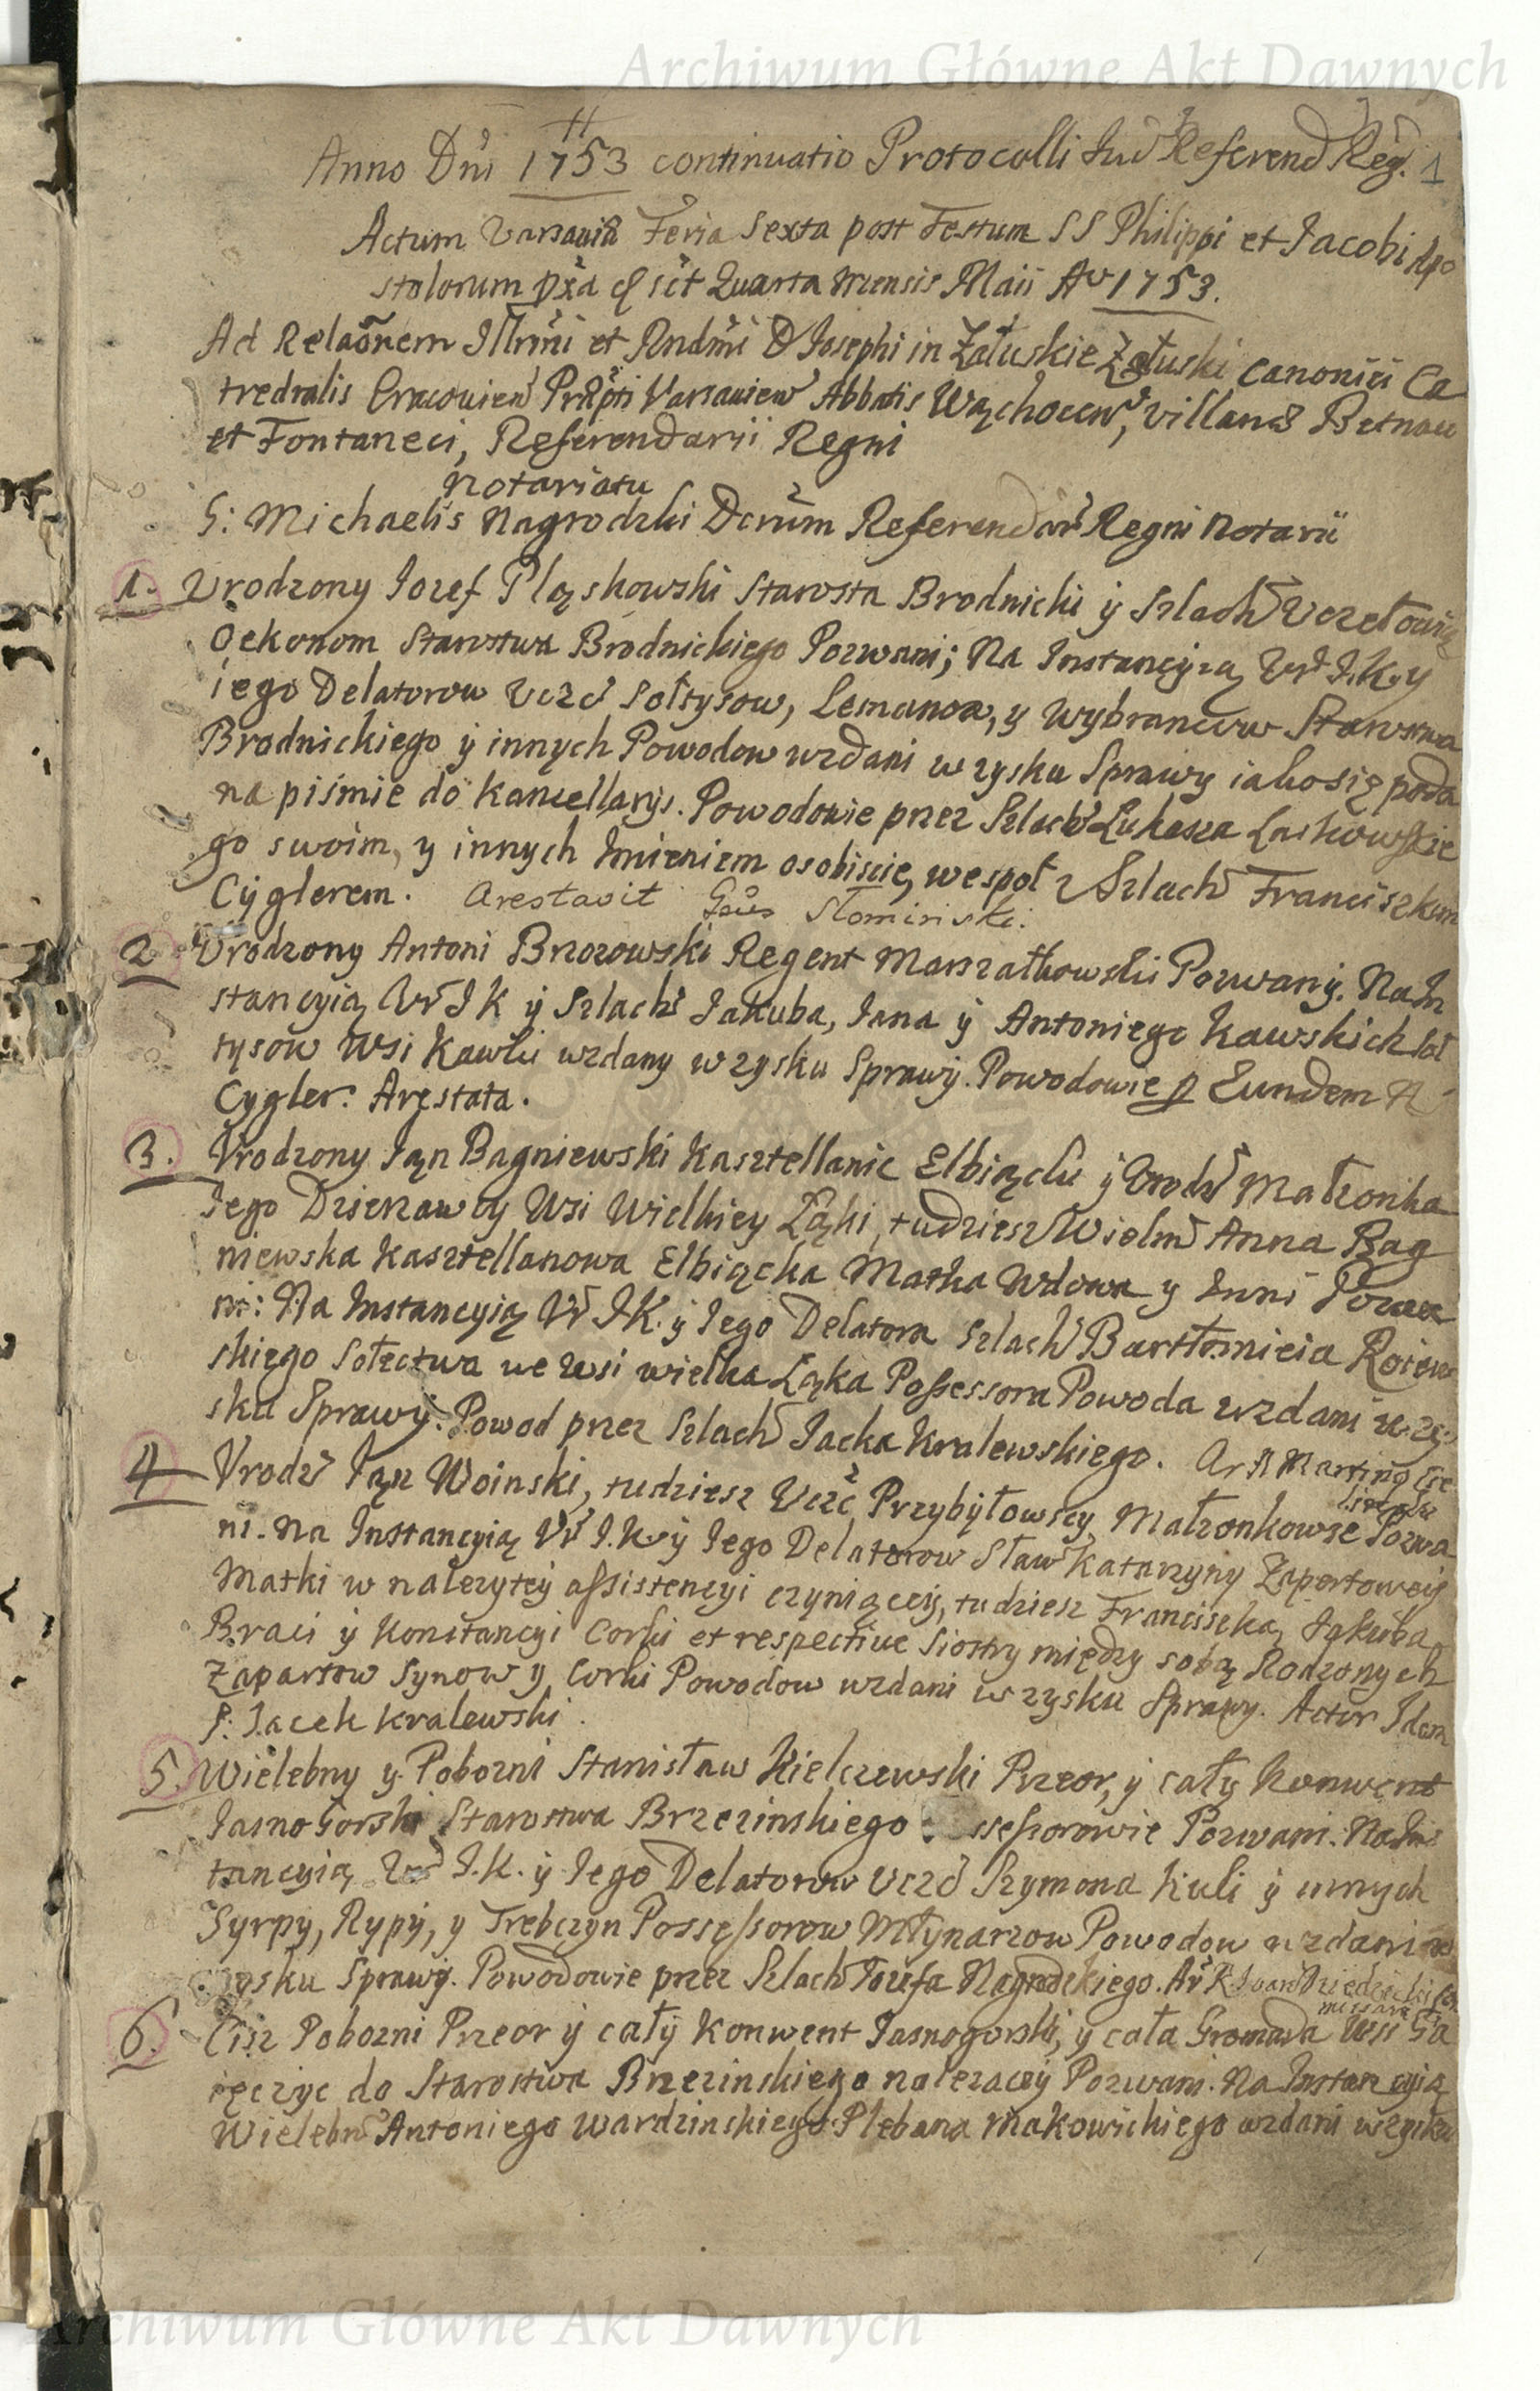 Archiwum Główne Akt Dawnych
Anno Dni 1753 continuatio Protocolli Jud Referend Reg. 1
Actum Varsaviæ Feria Sexta post Festum SS Philippi et Jacobi Apo
stolorum pxa Quarta Mensis Maii Ao 1753.
Ad Relaõnem Illmi et Rndmi D Josephi in Załuskie Załuski Canonici Ca
tredralis Cracovien Præpti Varsavien Abbatis Wąchocen, Villaris Betnau
et Fontaneti, Referendarii Regni
Notariatu
G: Michaelis Nagrodzki Decrum Referendar Regni Notarii
1. Vrodzony Jozef Pląskowski Starosta Brodnicki ÿ Szlach
Oekonom Starostwa Brodnickiego Pozwani; Na Instancyią Vr J.K. y
iego Delatorow Vczć Sołtysow, Lemanow, y Wybrancow Starostwa
Brodnickiego ÿ innych Powodow wzdani w zysku Sprawy iako się poda
na piśmie do Kancellaryi. Powodowie przez Szlach Łukasza Laskowskie
go swoim, y innych Imieniem osobiscie, wespoł z Szlach Franciszkiem
Cÿglerem. Arestavit Gsus Słominski.
2 Vrodzony Antoni Brzozowski Regent Marszałkowski Pozwany. Na In
stancyią Vr J K ÿ Szlach Jakuba, Jana ÿ Antoniego Kawskich Soł
tysow Wsi Kawki wzdany w zysku Sprawÿ. Powodowie p Eundem
Cygler. Arestata.
3. Vrodzony Jan Bagniewski Kasztellanic Elbiącki ÿ Vrodz Małzonka
Jego Dzierzawcy Wsi Wielkiey Łąki, tudziesz Wielm Anna Bag
niewska Kasztellanowa Elbiącka Matka Wdowa y Inni Pozwa
ni: Na Instancyią Vr J K. ÿ Jego Delatora Szlach Bartłomieia Roiew
skiego Sołectwa we Wsi wielka Łąka Possessora Powoda wzdani w zy
sku Sprawÿ. Powod przez Szlach Jacka Kralewskiego. Ar R Marting
4 Vrodz Jan Woinski, tudziesz Vczć Przybyłowscy Małzonkowie Pozwa
ni. Na Instancyią Vr J.K. ÿ Jego Delatorow Sław Katarzyny Zapartowey
Matki w nalezytey assistencyi czyniącey, tudziesz Franciszka, Jakuba,
Braci ÿ Konstancyi Corki et respective Siostry między sobą Rodzonych
Zapartow Synow y Corki Powodow wzdani w zysku Sprawy. Actor Idem
G: Jacek Kralewski.
5. Wielebny y Pobozni Stanisław Kielczewski Przeor, ÿ cały Konwent
Jasno Gorski Starostwa Brzezinskiego ssessorowie Pozwani. Na Ins
tancyią Vr J.K. ÿ Jego Delatorow Vczć Szymona Kuli ÿ innych
Syrpy, Rypÿ, y Trebczyn Possessorow Młynarzow Powodow wzdani w
zysku Sprawÿ. Powodowie przez Szlach Jozefa Nagrodzkiego. Ar R
6. Ciz Pobozni Przeor ÿ całÿ Konwent Jasnogorski, y cała Gromada Wsi Ga
ięczyc do Starostwa Brzezinskiego nalezacey Pozwani. Na Instancyią
Wielebn Antoniego Wardzinskiego Plebana Makowickiego wzdani w zysku
Archiwum Główne Akt Dawnych